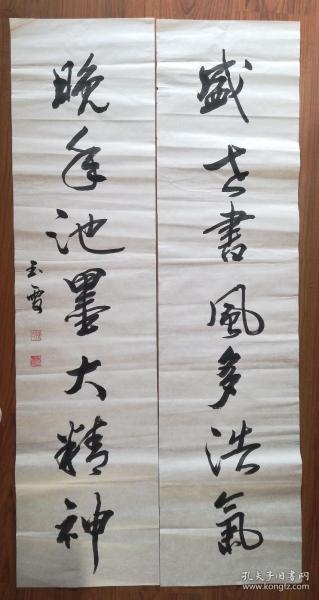 盛世書風多浩氣
晚年池墨大精神
玉雪
孔夫子旧书网